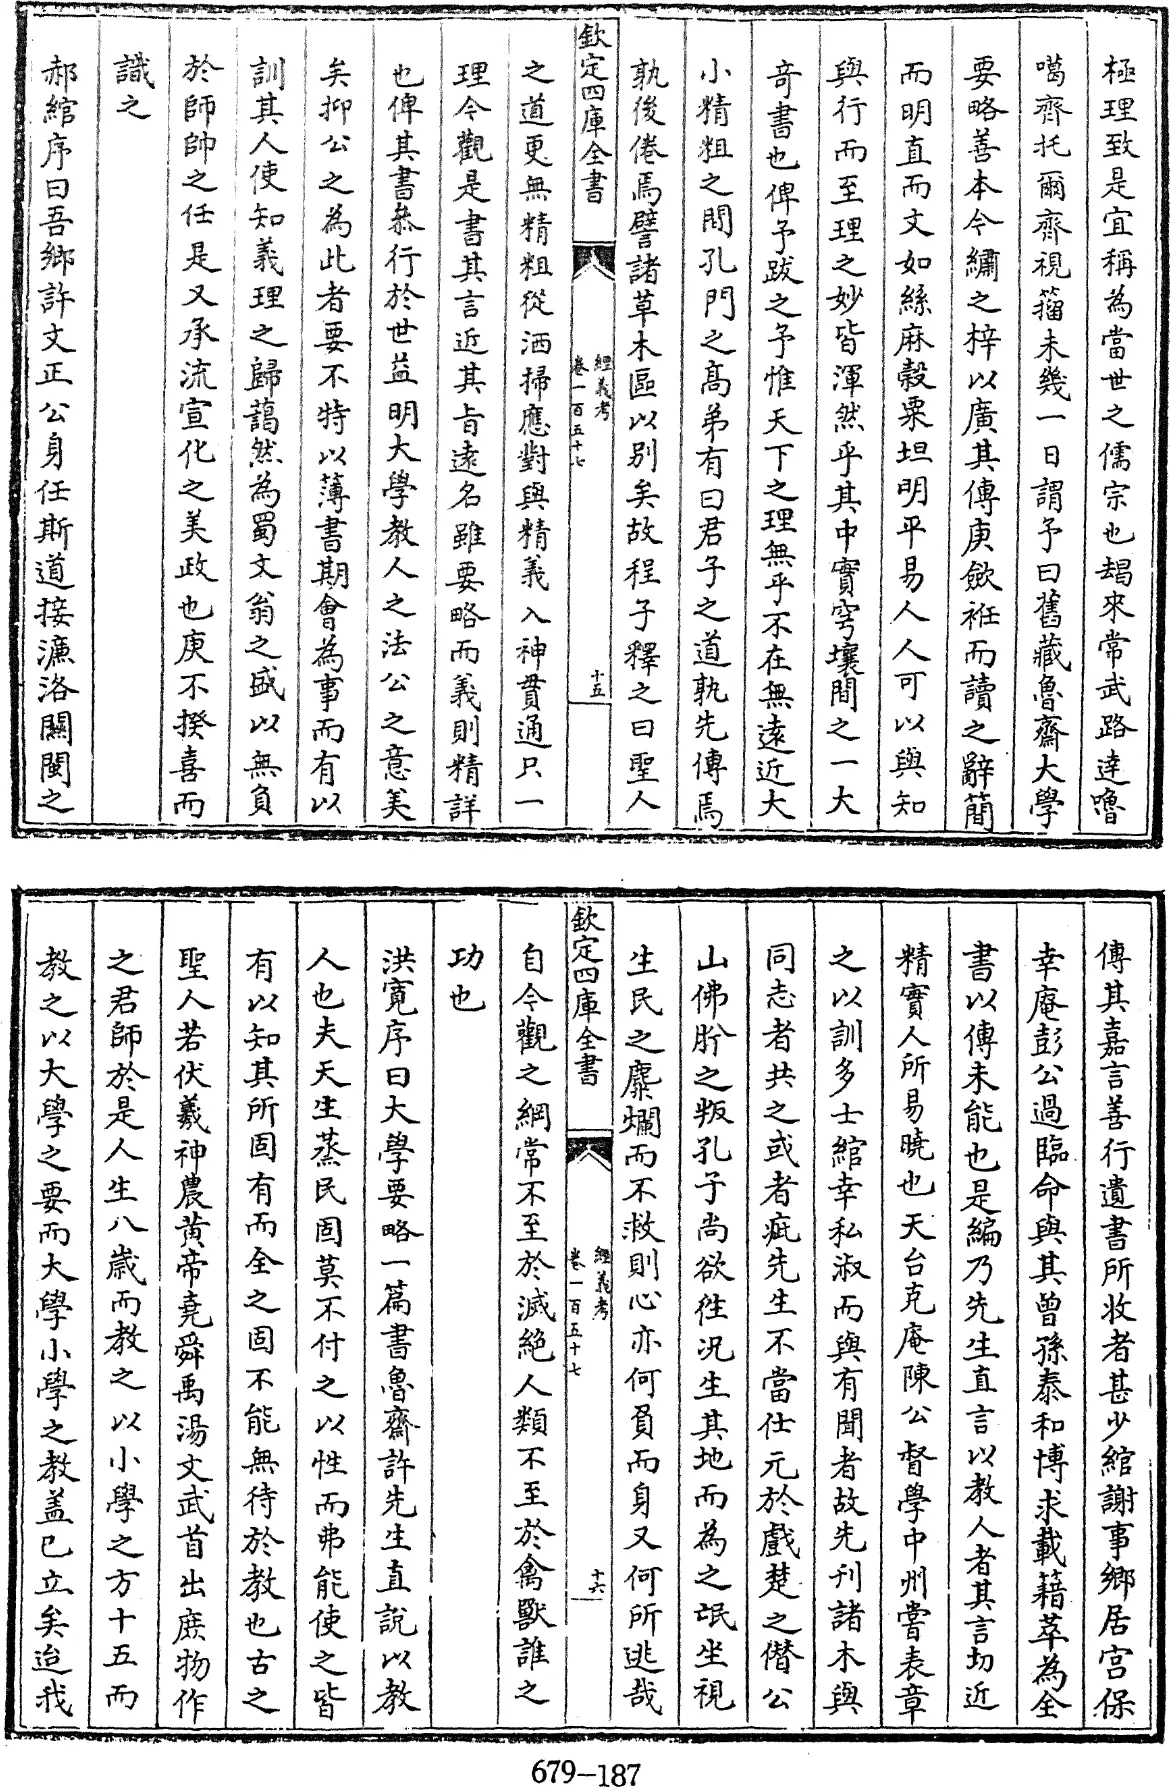 極理致是宜稱為當世之儒宗也朅來常武路達嚕
噶齊托爾齊視篆未幾一日謂予曰舊藏魯齋大學
要略善本今繡之梓以廣其傳庚歛袵而讀之辭簡
而明直而文如絲麻穀粟坦明平易人人可以與知
與行而至理之妙皆渾然乎其中實穹壤間之一大
竒書也俾予跋之予惟天下之理無乎不在無遠近大
小精粗之間孔門之髙弟有曰君子之道孰先傳焉
孰後倦焉譬諸草木區以别矣故程子釋之曰聖人
欽定四庫全書
經義考
卷一百五十七
十五
之道更無精粗從洒掃應對與精義入神貫通只一
理今觀是書其言近其旨逺名雖要略而義則精詳
也俾其書叅行於世益明大學教人之法公之意美
矣抑公之為此者要不特以薄書期會為事而有以
訓其人使知義理之歸藹然為蜀文翁之盛以無負
於師帥之任是又承流宣化之美政也庚不揆喜而
識之
郝綰序曰吾鄉許文正公身任斯道接濂洛關閩之
傳其嘉言善行遺書所收者甚少綰謝事鄉居宫保
幸庵彭公過臨命與其曾孫泰和博求載籍萃為全
書以傳未能也是編乃先生直言以教人者其言切近
精實人所易曉也天台克庵陳公督學中州嘗表章
之以訓多士綰幸私淑而與有聞者故先刊諸木與
同志者共之或者疵先生不當仕元於戲楚之僭公
山佛肸之叛孔子尚欲徃况生其地而為之氓坐視
生民之糜爛而不救則心亦何負而身又何所逃哉
欽定四庫全書
經義考
卷一百五十七
十六
自今觀之綱常不至於滅絶人類不至於禽獸誰之
功也
洪寛序曰大學要略一篇書魯齋許先生直説以教
人也夫天生蒸民固莫不付之以性而弗能使之皆
有以知其所固有而全之固不能無待於教也古之
聖人若伏羲神農黄帝堯舜禹湯文武首出庶物作
之君師於是人生八歲而教之以小學之方十五而
教之以大學之要而大學小學之教盖已立矣迨我
679-187